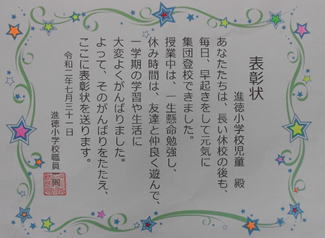 表彰状
進徳小学校児童 殿
あなたたちは、長い休校の後も、
毎日、早起きをして元気に
集団登校できました。
授業中は、一生懸命勉強し、
休み時間は、友達と仲良く遊んで、
一学期の学習や生活に
大変よくがんばりました。
よって、そのがんばりをたたえ、
ここに表彰状を送ります。
令和二年七月三十一日
進徳小学校職員一同